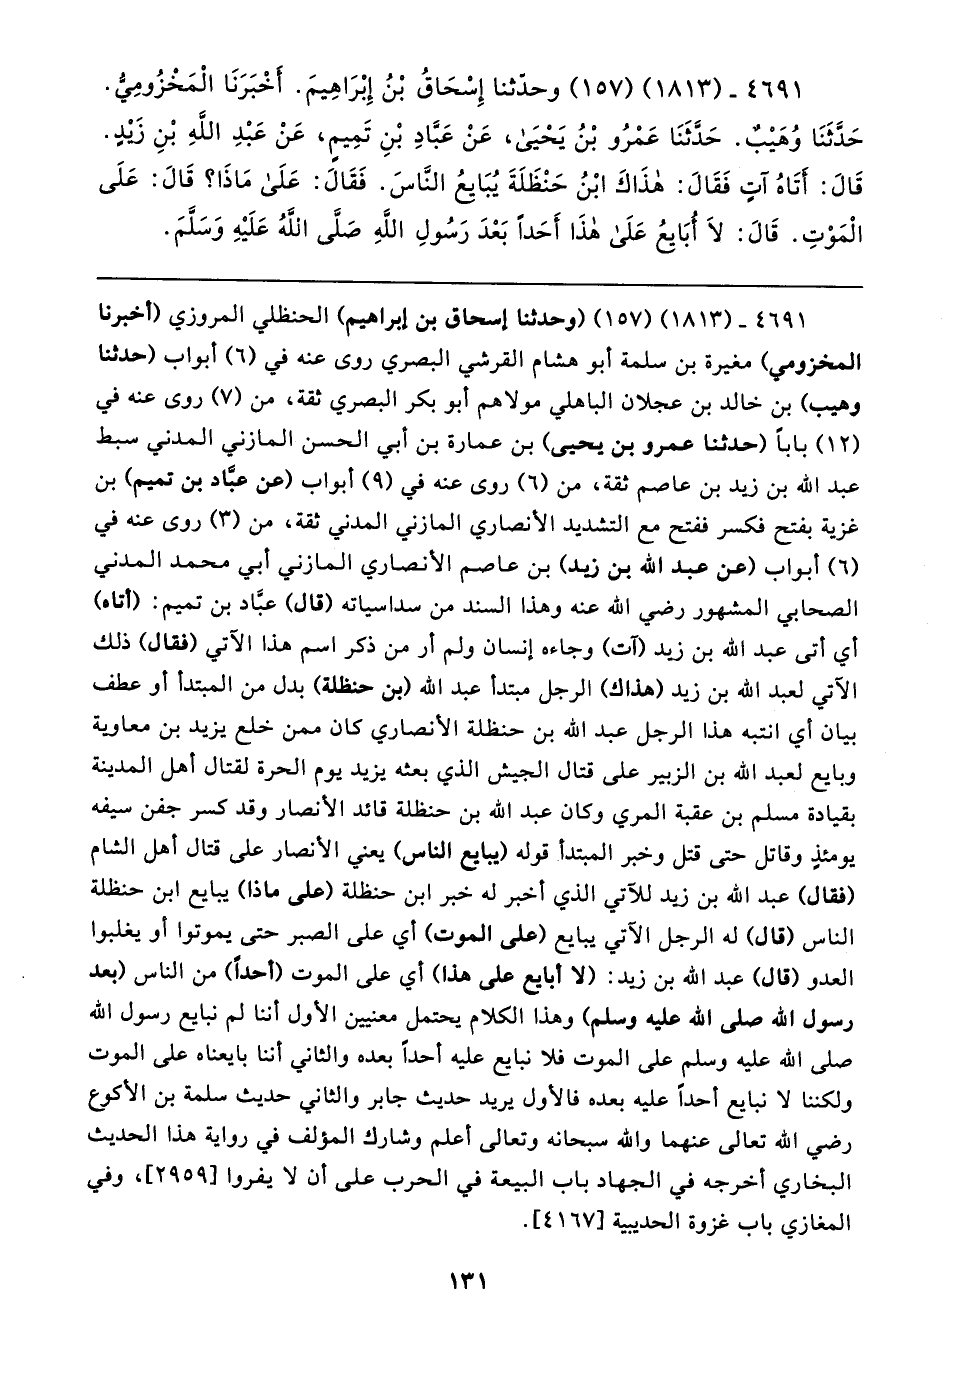 ٤٦٩١ ـ (١٨١٣) (١٥٧) وحدّثنا إِسْحَاقُ بْنُ إِبْرَاهِيمَ. أَخْبَرَنَا الْمَخْزُومِيُّ.
حَدَّثَنَا وُهَيْبٌ. حَدَّثَنَا عَمْرُو بْنُ يَحْيَىٰ، عَنْ عَبَّادِ بْنِ تَمِيمٍ، عَنْ عَبْدِ اللَّهِ بْنِ زَيْدٍ.
قَالَ: أَتَاهُ آتٍ فَقَالَ: هٰذَاكَ ابْنُ حَنْظَلَةَ يُبَايِعُ النَّاسَ. فَقَالَ: عَلَىٰ مَاذَا؟ قَالَ: عَلَى
الْمَوْتِ. قَالَ: لاَ أُبَايِعُ عَلَىٰ هٰذَا أَحَداً بَعْدَ رَسُولِ اللَّهِ صَلَّى اللَّهُ عَلَيْهِ وَسَلَّمَ.
٤٦٩١ ـ (١٨١٣) (١٥٧) (وحدثنا إسحاق بن إبراهيم) الحنظلي المروزي (أخبرنا
المخزومي) مغيرة بن سلمة أبو هشام القرشي البصري روى عنه في (٦) أبواب (حدثنا
وهيب) بن خالد بن عجلان الباهلي مولاهم أبو بكر البصري ثقة، من (٧) روى عنه في
(١٢) باباً (حدثنا عمرو بن يحيى) بن عمارة بن أبي الحسن المازني المدني سبط
عبد الله بن زيد بن عاصم ثقة، من (٦) روى عنه في (٩) أبواب (عن عبَّاد بن تميم) بن
غزية بفتح فكسر ففتح مع التشديد الأنصاري المازني المدني ثقة، من (٣) روى عنه في
(٦) أبواب (عن عبد الله بن زيد) بن عاصم الأنصاري المازني أبي محمد المدني
الصحابي المشهور رضي الله عنه وهذا السند من سداسياته (قال) عبَّاد بن تميم: (أتاه)
أي أتى عبد الله بن زيد (آت) وجاءه إنسان ولم أر من ذكر اسم هذا الآتي (فقال) ذلك
الآتي لعبد الله بن زيد (هذاك) الرجل مبتدأ عبد الله (بن حنظلة) بدل من المبتدأ أو عطف
بيان أي انتبه هذا الرجل عبد الله بن حنظلة الأنصاري كان ممن خلع يزيد بن معاوية
وبايع لعبد الله بن الزبير على قتال الجيش الذي بعثه يزيد يوم الحرة لقتال أهل المدينة
بقيادة مسلم بن عقبة المري وكان عبد الله بن حنظلة قائد الأنصار وقد كسر جفن سيفه
يومئذٍ وقاتل حتى قتل وخبر المبتدأ قوله (يبايع الناس) يعني الأنصار على قتال أهل الشام
(فقال) عبد الله بن زيد للآتي الذي أخبر له خبر ابن حنظلة (على ماذا) يبايع ابن حنظلة
الناس (قال) له الرجل الآتي يبايع (على الموت) أي على الصبر حتى يموتوا أو يغلبوا
العدو (قال) عبد الله بن زيد: (لا أبايع على هذا) أي على الموت (أحداً) من الناس (بعد
رسول الله صلى الله عليه وسلم) وهذا الكلام يحتمل معنيين الأول أننا لم نبايع رسول الله
صلى الله عليه وسلم على الموت فلا نبايع عليه أحداً بعده والثاني أننا بايعناه على الموت
ولكننا لا نبايع أحداً عليه بعده فالأول يريد حديث جابر والثاني حديث سلمة بن الأكوع
رضي الله تعالى عنهما والله سبحانه وتعالى أعلم وشارك المؤلف في رواية هذا الحديث
البخاري أخرجه في الجهاد باب البيعة في الحرب على أن لا يفروا [٢٩٥٩]، وفي
المغازي باب غزوة الحديبية [٤١٦٧].
١٣١